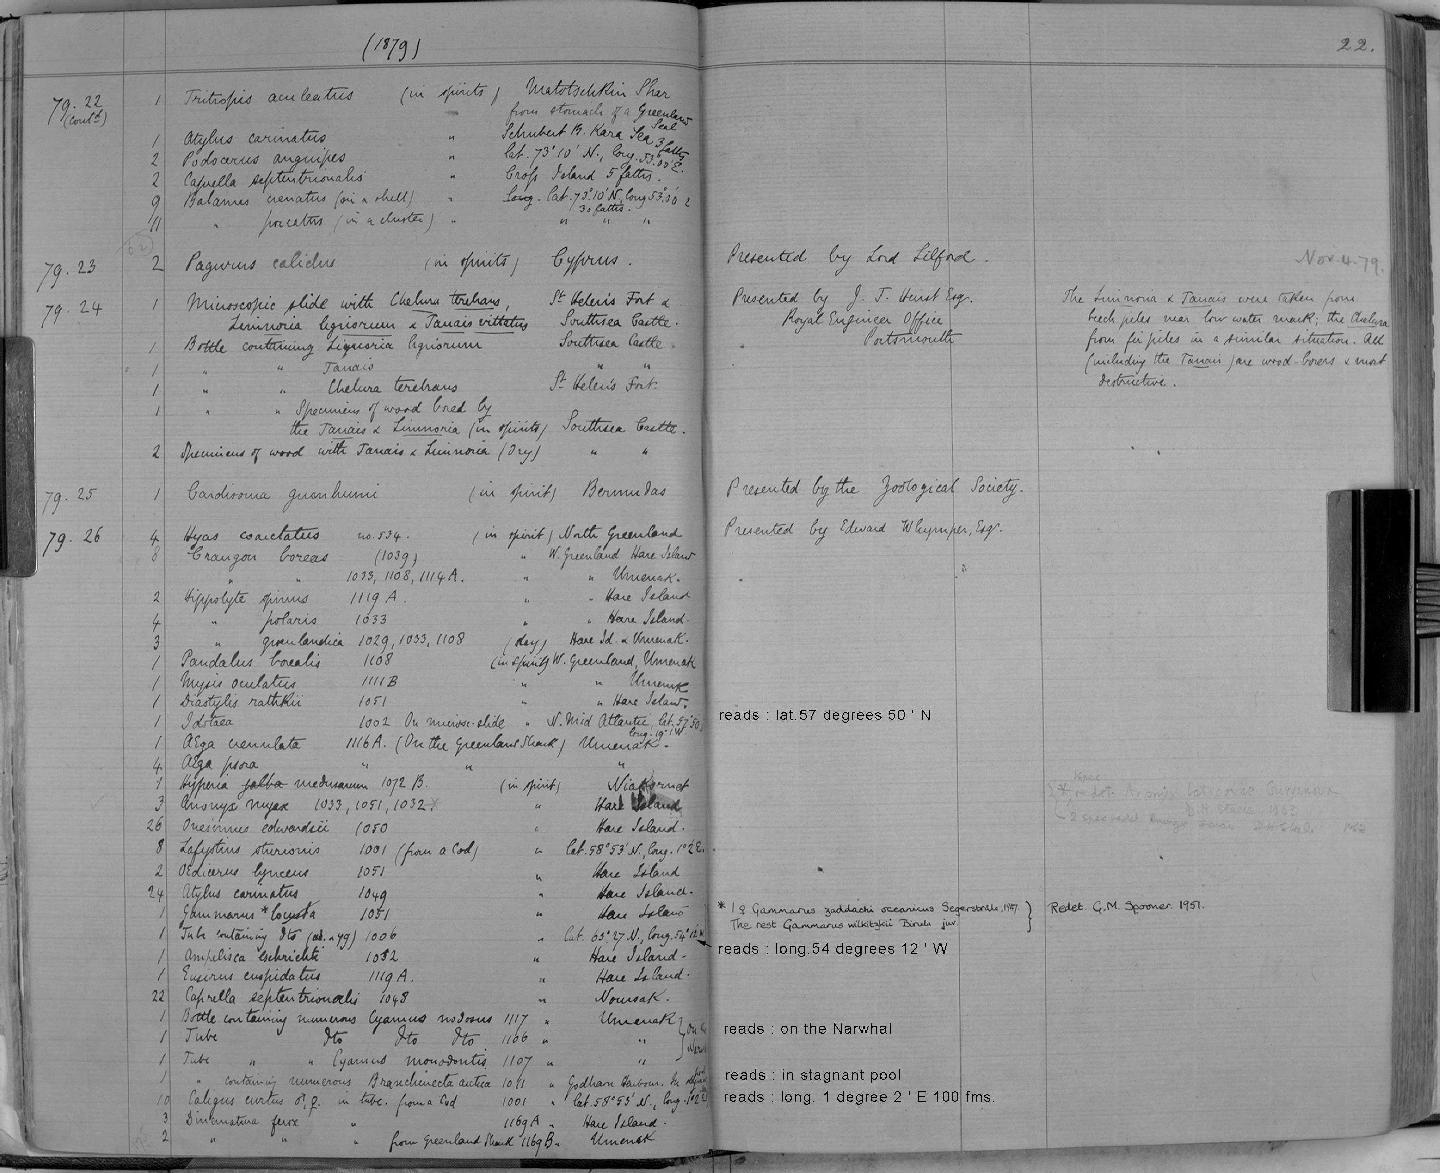 (1879)
22.
79. 22 1 Tritropis aculeatus (in spirits) Matotschkin Shar
(contd) from stomach of a Greenland Seal
1 Atylus carinatus " Schubert B. Kara Sea 3 faths
2 Podocerus anguipes " lat. 73° 10' N., long. 53°.00' E.
2 Caprella septentrionalis " Cross Island 5 faths.
9 Balanus crenatus (on a shell) " Long. Lat. 73°.10' N, long 53°.30'
30 faths.
11 " porcatus (in a cluster) " " " "
79. 23 2 Pagurus calidus (in spirits) Cyprus. Presented by Lord Lilford. Nov. 4. 79.
79. 24 1 Microscopic slide with Chelura terebrans, St Helen's Fort & Presented by J. T. Hurst Esq.
Limnoria lignorum & Tanais vittatus Southsea Castle. Royal Engineer Office
Portsmouth
The Limnoria & Tanais were taken from
beech piles near low water mark; the Chelura
from fir piles in a similar situation. All
(including the Tanais) are wood-borers & most
destructive.
1 Bottle containing Limnoria lignorum Southsea Castle
1 " " Tanais " "
1 " " Chelura terebrans St Helen's Fort
1 " " Specimens of wood bored by
the Tanais & Limnoria (in spirits) Southsea Castle.
2 Specimens of wood with Tanais & Limnoria (Dry) " "
79. 25 1 Cardisoma guanhumi (in spirit) Bermudas Presented by the Zoological Society.
79. 26 4 Hyas coarctatus no. 534. (in spirit) North Greenland Presented by Edward Whymper, Esqr.
8 Crangon boreas (1039) " W. Greenland Hare Island
" " 1033, 1108, 1114A. " " Umenak.
2 Hippolyte spinus 1119 A. " " Hare Island
4 " polaris 1033 " " Hare Island.
3 " groenlandica 1029, 1033, 1108 (dry) Hare Id. & Umenak.
1 Pandalus borealis 1108 (in spirit) W. Greenland, Umenak
1 Mysis oculatus 1111 B " " Umenak
1 Diastylis rathkii 1051 " " Hare Island.
1 Idotaea 1002 On microsc. slide " N. Mid Atlantic, lat. 57° 50
long. 19° 1' W
reads : lat.57 degrees 50 ' N
1 Æga crenulata 1116 A. (On the Greenland Shark) Umenak.
4 Æga psora " " "
1 Hyperia galba medusarum 1072 B. (in spirit) Niakornet
3 Anonyx nugax 1033, 1051, 1032 " Hare Island
26 Onesimus edwardsii 1050 " Hare Island.
8 Lafystius sturionis 1001 (from a Cod) " Lat. 58° 53' N., long. 1° 2' E.
2 Oedicerus lynceus 1051 " Hare Island
24 Atylus carinatus 1049 " Hare Island.
1 Gammarus * locusta 1051 " Hare Island
* 1 ♀ Gammarus zaddachi oceanicus Segerstråle, 1947. } Redet. G.M. Spooner. 1951.
The rest Gammarus wilkitzkii Birula juv.
1 Tube containing dto (ad. & yg) 1006 " Lat. 63° 27' N., long. 54° 12' W
reads : long.54 degrees 12 ' W
1 Ampelisca eschrichti 1032 " Hare Island -
1 Eusirus cuspidatus 1119 A. " Hare Island.
22 Caprella septentrionalis 1048 " Noursak.
1 Bottle containing numerous Cyamus nodosus 1117 " Umenak
reads : on the Narwhal
1 Tube dto dto dto 1106 " "
1 Tube " " Cyamus monodontis 1107 " "
1 " containing numerous Branchinecta arctica 1011 " Godhavn Harbour.
reads : in stagnant pool
10 Caligus curtus ♂, ♀. in tube. from a Cod 1001 " Lat. 58° 53' N., long. 1° 2'
reads : long. 1 degree 2 ' E 100 fms.
3 Dinematura ferox " 1169 A " Hare Island.
2 " " " from Greenland Shark 1169 B " Umenak